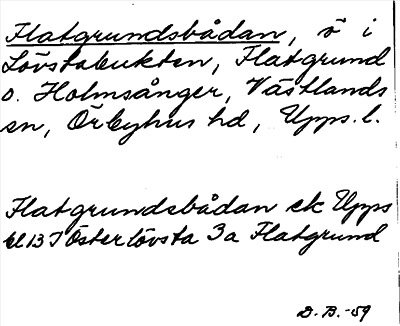 Flatgrundsbådan, ö i
Lövstabukten, Flatgrund
o. Holmsånger, Västlands
sn, Örbyhus hd, Upps. l.
Flatgrundsbådan ek Upps
bl 13 J Österlövsta 3a Flatgrund
D. B. -59